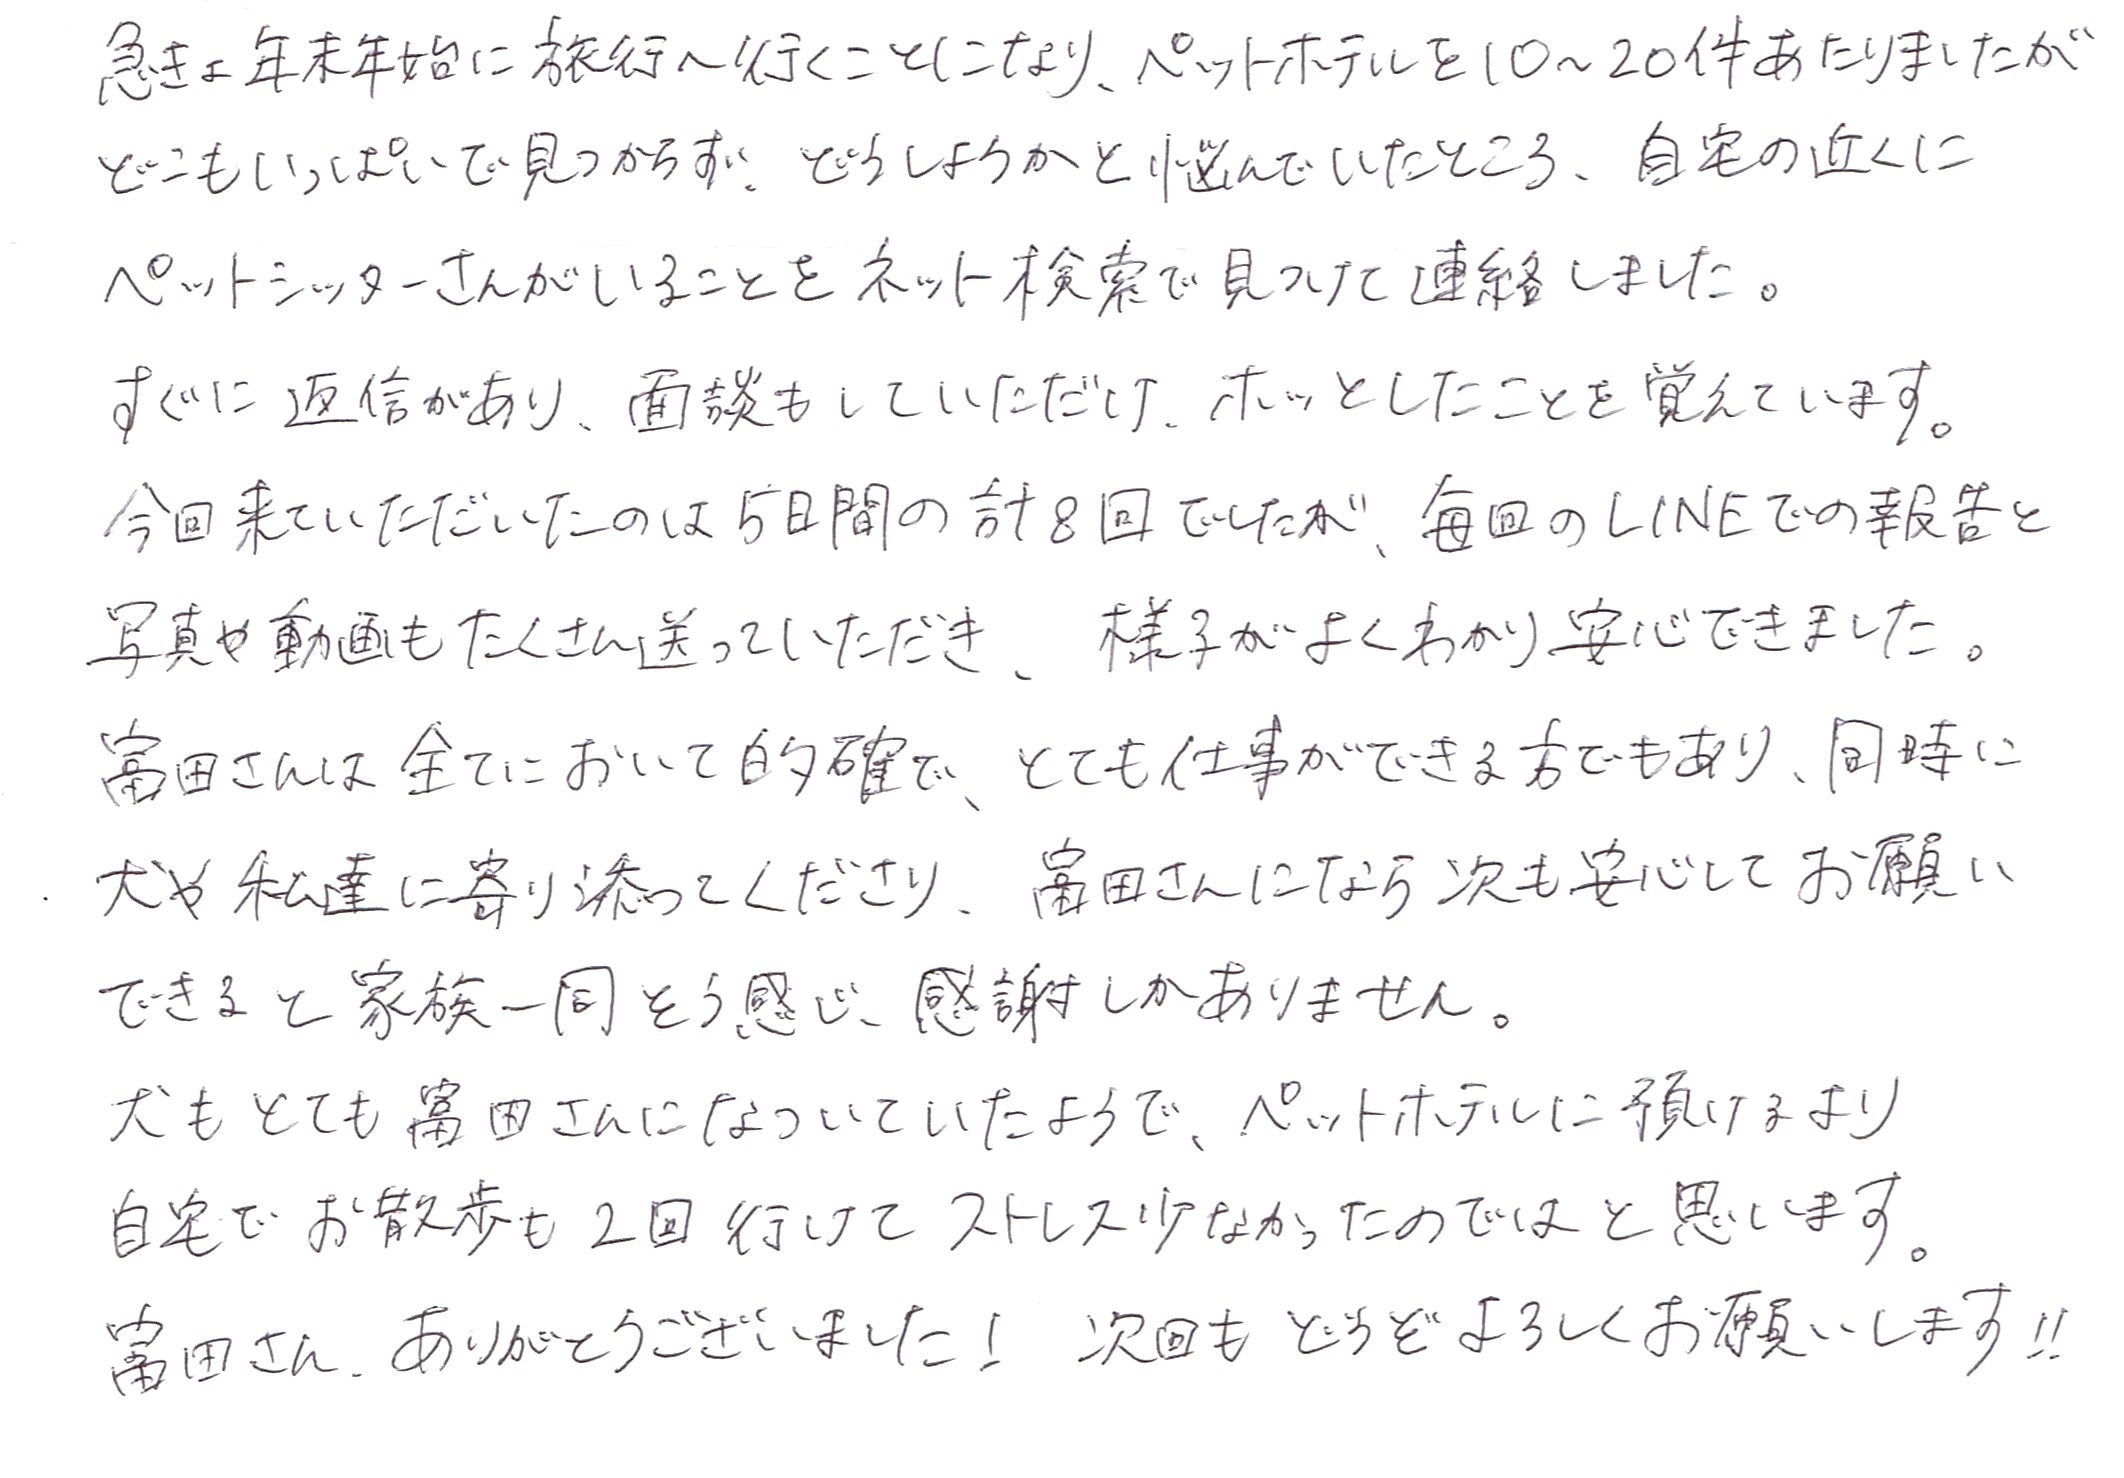 急きょ年末年始に旅行へ行くことになり、ペットホテルを10～20件あたりましたが
どこもいっぱいで見つからず、どうしようかと悩んでいたところ、自宅の近くに
ペットシッターさんがいることをネット検索で見つけて連絡しました。
すぐに返信があり、面談もしていただけ、ホッとしたことを覚えています。
今回来ていただいたのは5日間の計8回でしたが、毎回のLINEでの報告と
写真や動画もたくさん送っていただき、様子がよくわかり安心できました。
富田さんは全てにおいて的確で、とても仕事ができる方でもあり、同時に
犬や私達に寄り添ってくださり、富田さんになら次も安心してお願い
できると家族一同そう感じ、感謝しかありません。
犬もとても富田さんになついていたようで、ペットホテルに預けるより
自宅でお散歩も2回行けてストレス少なかったのではと思います。
富田さん、ありがとうございました! 次回もどうぞよろしくお願いします!!